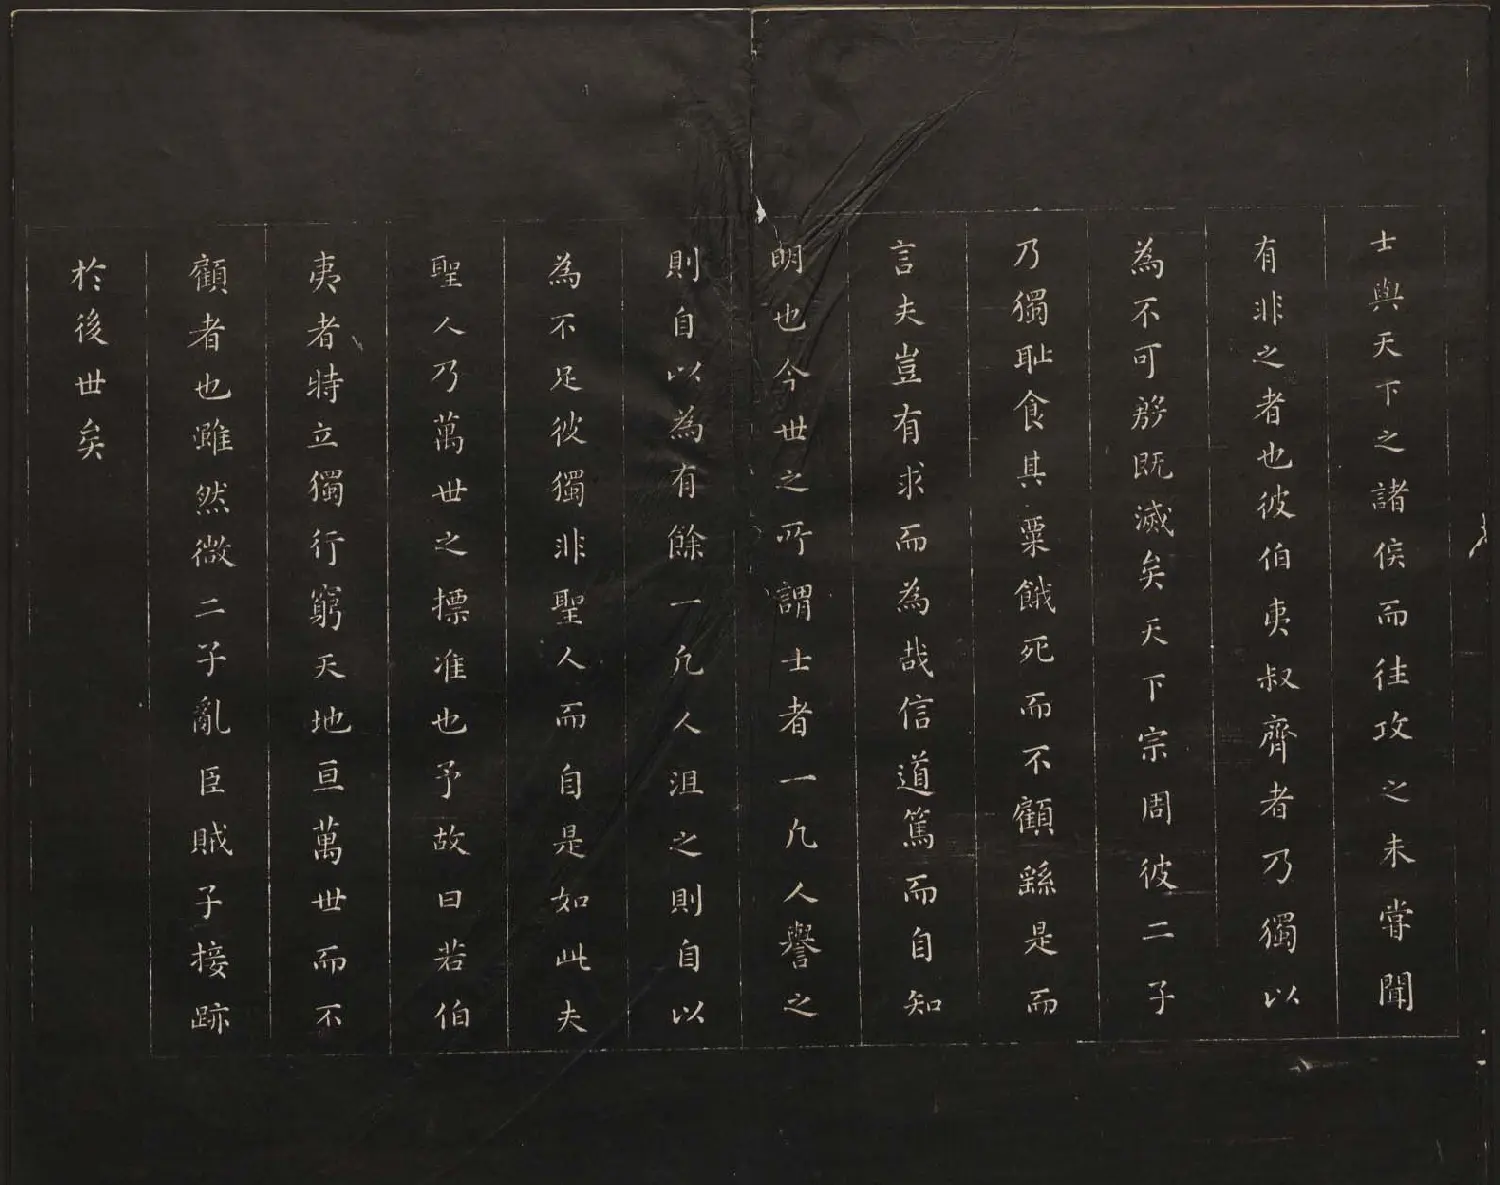 士與天下之諸侯而往攻之未甞聞
有非之者也彼伯夷叔齊者乃獨以
為不可殷既滅矣天下宗周彼二子
乃獨恥食其粟餓死而不顧繇是而
言夫豈有求而為哉信道篤而自知
明也今世之所謂士者一凡人譽之
則自以為有餘一凡人沮之則自以
為不足彼獨非聖人而自是如此夫
聖人乃萬世之標准也予故曰若伯
夷者特立獨行窮天地亘萬世而不
顧者也雖然微二子亂臣賊子接跡
於後世矣